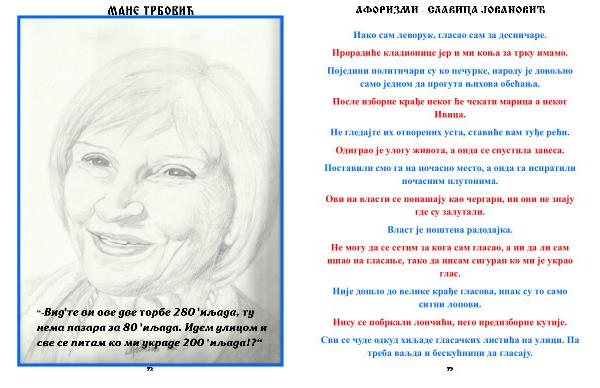 МАНЕ ТРБОВИЋ
"-Вид'те ви ове две торбе 280 'иљада, ту
нема пазара за 80 'иљада. Идем улицом и
све се питам ко ми украде 200 'иљада!?"
АФОРИЗМИ - СЛАВИЦА ЈОВАНОВИЋ
Иако сам леворук, гласао сам за десничаре.
Прорадиће кладионице јер и ми коња за трку имамо.
Поједини политичари су ко печурке, народу је довољно
само једном да прогута њихова обећања.
После изборне крађе неког ће чекати марица а неког
Ивица.
Не гледајте их отворених уста, ставиће вам туђе речи.
Одиграо је улогу живота, а онда се спустила завеса.
Поставили смо га на почасно место, а онда га испратили
почасним плутонима.
Ови на власти се понашају као чергари, ни они не знају
где су залутали.
Власт је поштена радодајка.
Не могу да се сетим за кога сам гласао, а ни да ли сам
ишао на гласање, тако да нисам сигуран ко ми је украо
глас.
Није дошло до велике крађе гласова, ипак су то само
ситни лопови.
Нису се побркали лончићи, него предизборне кутије.
Сви се чуде откуд хиљаде гласачких листића на улици. Па
треба ваљда и бескућници да гласају.